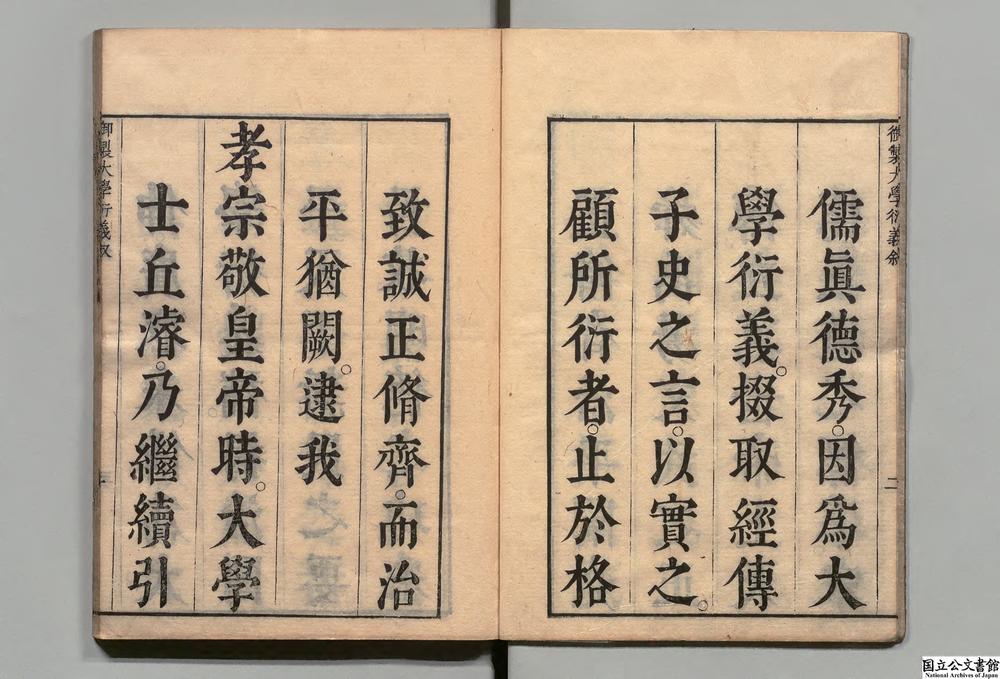 御製大學衍義叙
二
儒眞德秀。因爲大
學衍義。掇取經傳
子史之言。以實之。
顧所衍者。止於格
致誠正脩齊。而治
平猶闕。逮我
孝宗敬皇帝時。大學
士丘濬。乃繼續引
御製大學衍義叙
国立公文書館
National Archives of Japan